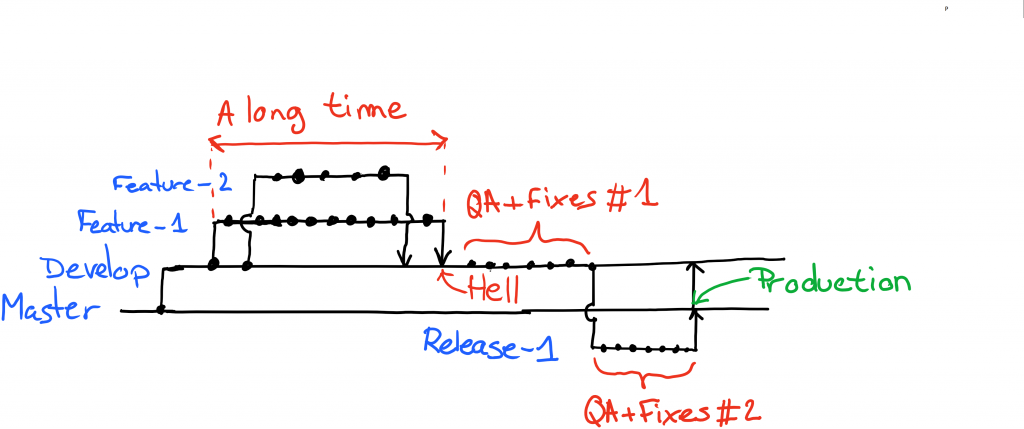 A long time
Feature-2
Feature-1
QA+Fixes #1
Develop
Hell
Production
Master
Release-1
QA+Fixes #2